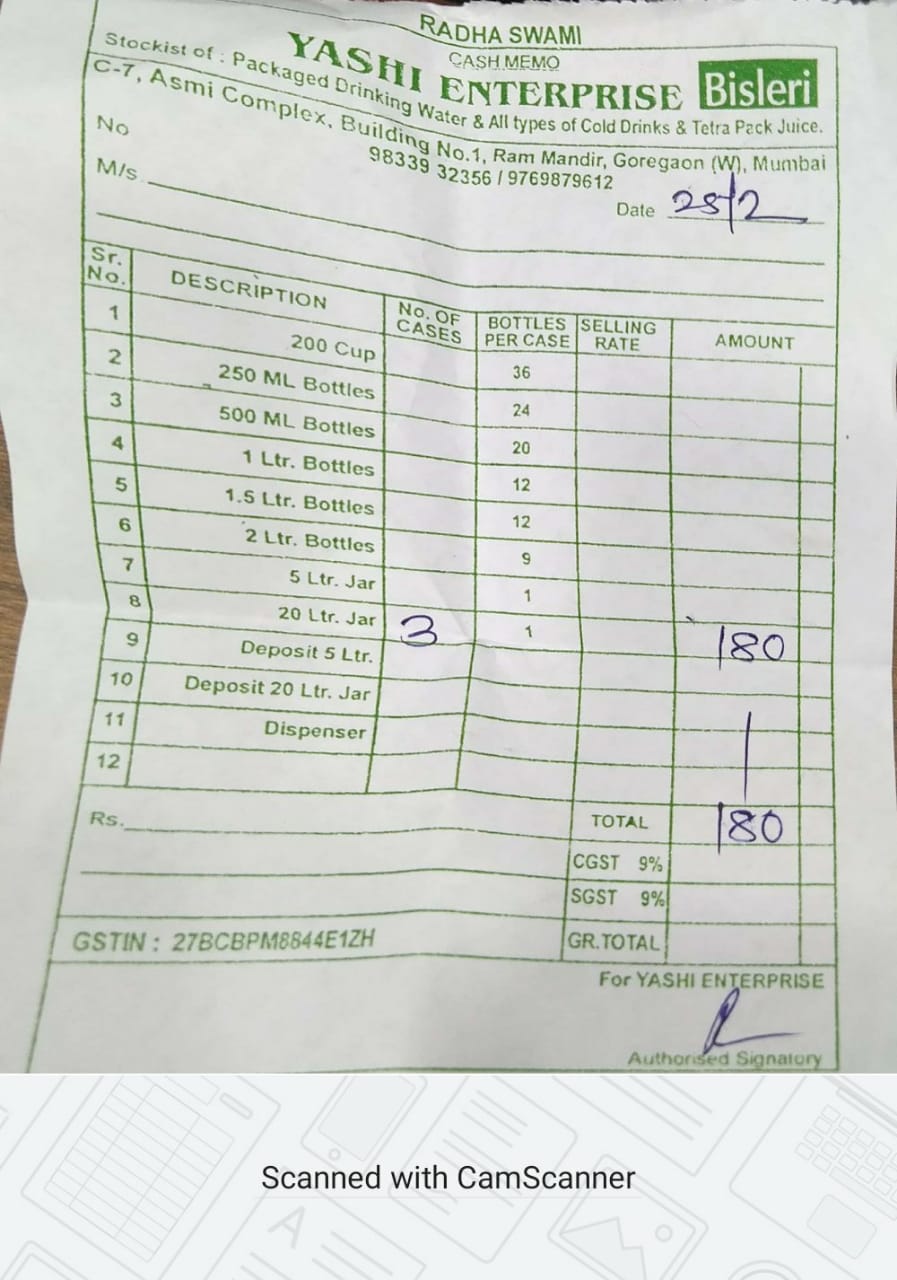 RADHA SWAMI
CASH MEMO
YASHI ENTERPRISE Bisleri
Stockist of : Packaged Drinking Water & All types of Cold Drinks & Tetra Pack Juice.
C-7, Asmi Complex, Building No.1, Ram Mandir, Goregaon (W), Mumbai
98339 32356 / 9769879612
No
Date 25/2
M/s
Sr. No. DESCRIPTION No. OF CASES BOTTLES PER CASE SELLING RATE AMOUNT
1 200 Cup 36
2 250 ML Bottles 24
3 500 ML Bottles 20
4 1 Ltr. Bottles 12
5 1.5 Ltr. Bottles 12
6 2 Ltr. Bottles 9
7 5 Ltr. Jar 1
8 20 Ltr. Jar 3 1 180
9 Deposit 5 Ltr.
10 Deposit 20 Ltr. Jar
11 Dispenser
12
Rs. TOTAL 180
CGST 9%
SGST 9%
GSTIN : 27BCBPM8844E1ZH GR.TOTAL
For YASHI ENTERPRISE
Authorised Signatory
Scanned with CamScanner